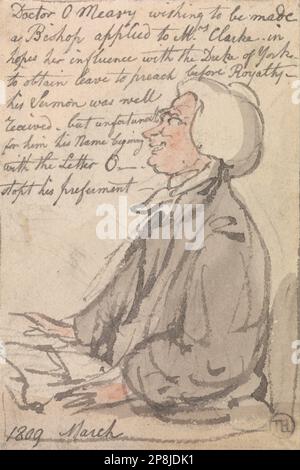 Doctor O Meary wishing to be made
a Bishop applied to Mrs Clarke - in
hopes her influence with the Duke of York
to obtain leave to preach before Royalty -
his Sermon was well
received - but unfortunate
for him his Name begining
with the Letter O -
stopt his preferment
1809 March
TH
alamy
Image ID: 2P8JDK1
www.alamy.com